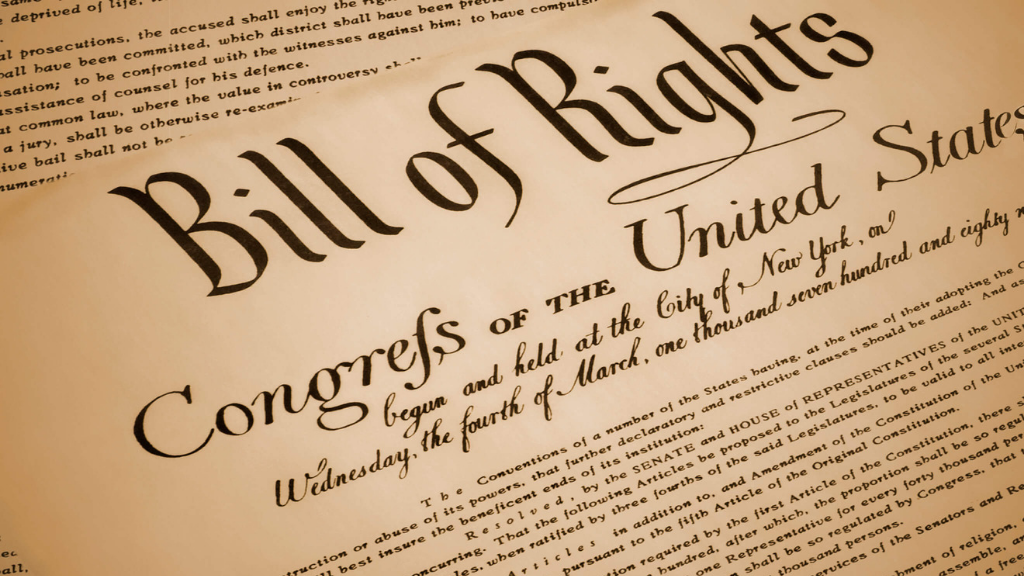 deprived of life,
al prosecutions, the accused shall enjoy the
hall have been committed, which district shall have been
sation; to be confronted with the witnesses against him; to have
assistance of counsel for his defence.
at common law, where the value in controversy
a jury, shall be otherwise
ive bail shall not be
Bill of Rights
Congreſs OF THE United States
begun and held at the City of New York, on
Wednesday, the fourth of March, one thousand seven hundred and eighty
The Conventions of a number of the States having, at the time of their adopting the
or abuse of its powers, that further declaratory and restrictive clauses should be added: And
best insure the beneficent ends of its institution:
Resolved, by the SENATE and HOUSE of REPRESENTATIVES of the
concurring. That the following Articles be proposed to the Legislatures of the several
when ratified by three fourths of the said Legislatures, to be valid to all
Articles in addition to, and Amendment of the Constitution of the
pursuant to the fifth Article of the Original Constitution.
required by the first Article of the Constitution, there
hundred, after which, the proportion shall be so
one Representative for every forty thousand
shall be so regulated by Congress, that
thousand persons.
services of the Senators and
of religion,